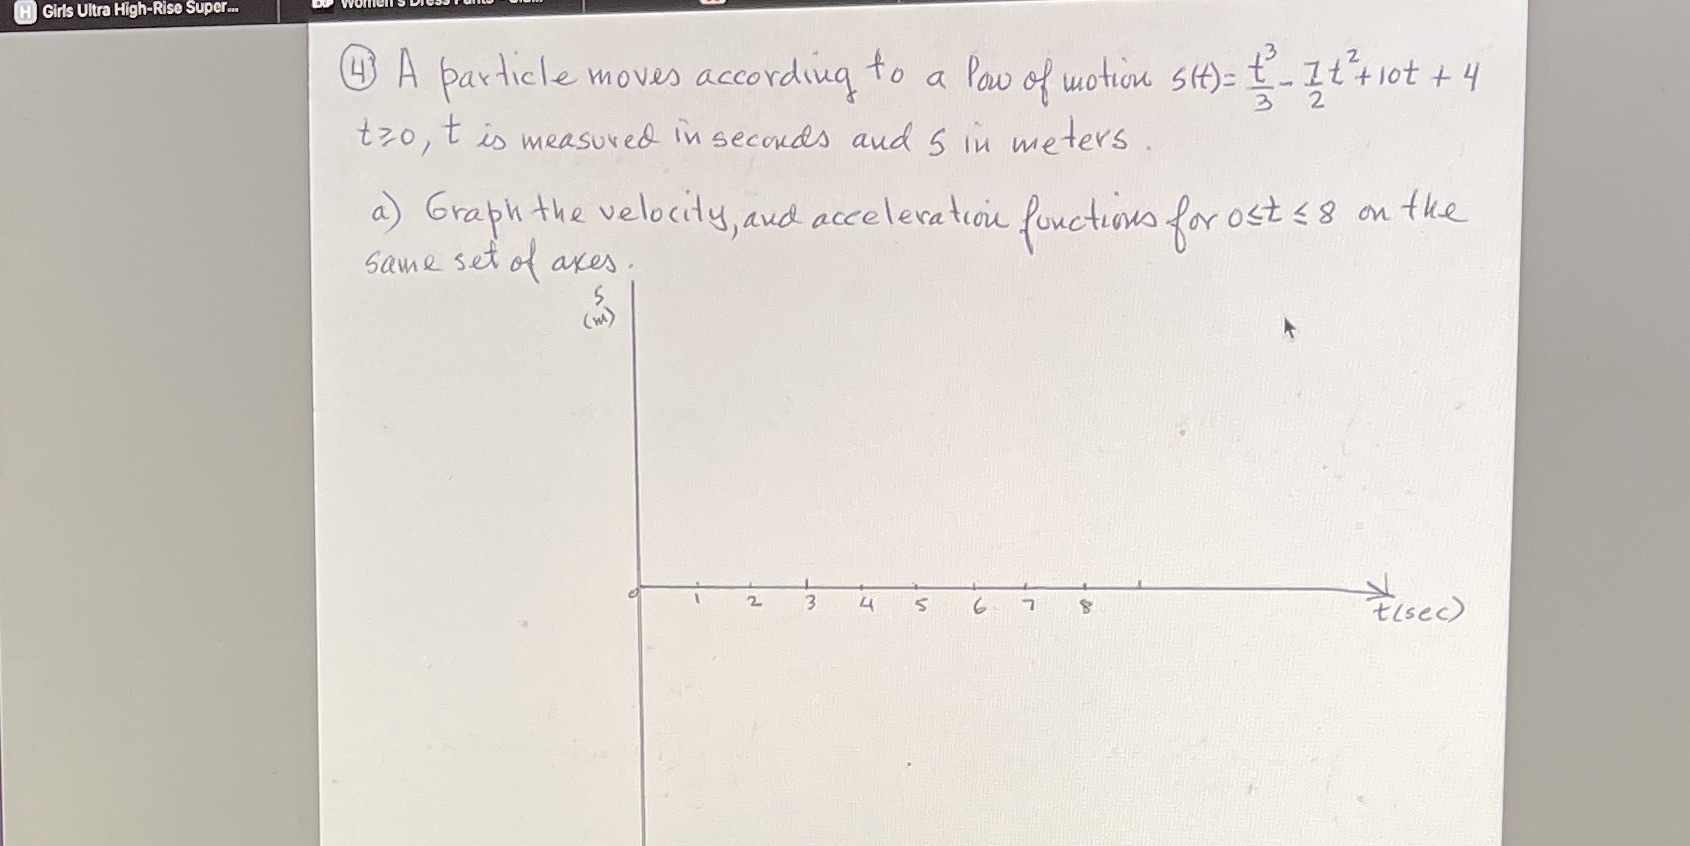 H Girls Ultra High-Rise Super...
④ A particle moves according to a law of motion s(t)= t³/3 - 7/2 t² + 10t + 4
t≥0, t is measured in seconds and s in meters.
a) Graph the velocity, and acceleration functions for 0≤t≤8 on the
same set of axes.
s
(m)
0 1 2 3 4 5 6 7 8
t(sec)